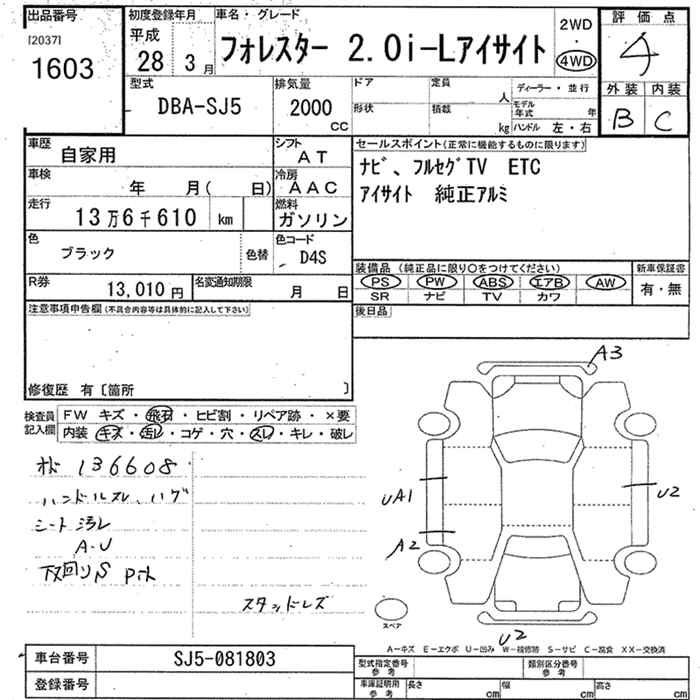 出品番号
[2037]
1603
初度登録年月
平成
28 3月
車名・グレード
フォレスター 2.0i-Lアイサイト
2WD
・
4WD
評価点
4
外装 内装
B C
型式
DBA-SJ5
排気量
2000
CC
ドア
形状
定員
人
積載
kg
ディーラー・並行
モデル年式 年
ハンドル 左・右
車歴
自家用
シフト
AT
車検
年 月( 日)
冷房
AAC
走行
13万6千610 km
燃料
ガソリン
色
ブラック
色替
色コード
D4S
R券
13,010円
名変通知期限
月 日
セールスポイント(正常に機能するものに限ります)
ナビ、フルセグTV ETC
アイサイト 純正アルミ
装備品 (純正品に限り○をつけてください)
PS PW ABS エアB AW
SR ナビ TV カワ
新車保証書
有・無
後日品
注意事項申告欄(不具合内容等は具体的に記入して下さい)
修復歴 有〔箇所 〕
検査員記入欄
FW キズ・飛石・ヒビ割・リペア跡・×要
内装 キズ・汚レ・コゲ・穴・スレ・キレ・破レ
オド 136608
ハンドルスレ、ハゲ
シート汚レ
A-U
下回りS
スタッドレス
A3
UA1
A2
U2
U2
スペア
A-キズ E-エクボ U-凹み W-補修跡 S-サビ C-腐食 XX-交換済
車台番号
SJ5-081803
登録番号
型式指定番号
参考
類別区分番号
参考
車庫証明用
参考
長さ cm
幅 cm
高さ cm